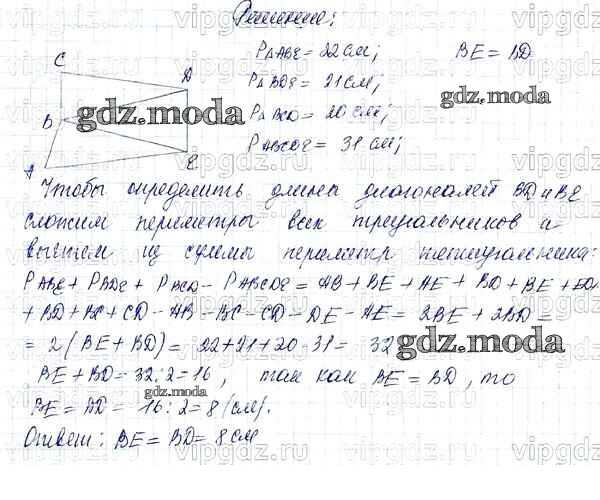 Решение:
P△ABE = 22 см; BE = BD
P△BDE = 21 см;
P△BCD = 20 см;
PABCDE = 31 см;
C
D
B
A
E
gdz.moda
gdz.moda
Чтобы определить длины диагоналей BD и BE
сложим периметры всех треугольников и
вычтем из суммы периметр пятиугольника:
PABE + PBDE + PBCD - PABCDE = AB + BE + AE + BD + BE + ED
+ BD + BC + CD - AB - BC - CD - DE - AE = 2BE + 2BD =
= 2(BE + BD) = 22 + 21 + 20 - 31 = 32
gdz.moda
BE + BD = 32 : 2 = 16, так как BE = BD, то
BE = BD = 16 : 2 = 8 (см).
gdz.moda
Ответ: BE = BD = 8 см
vipgdz.ru